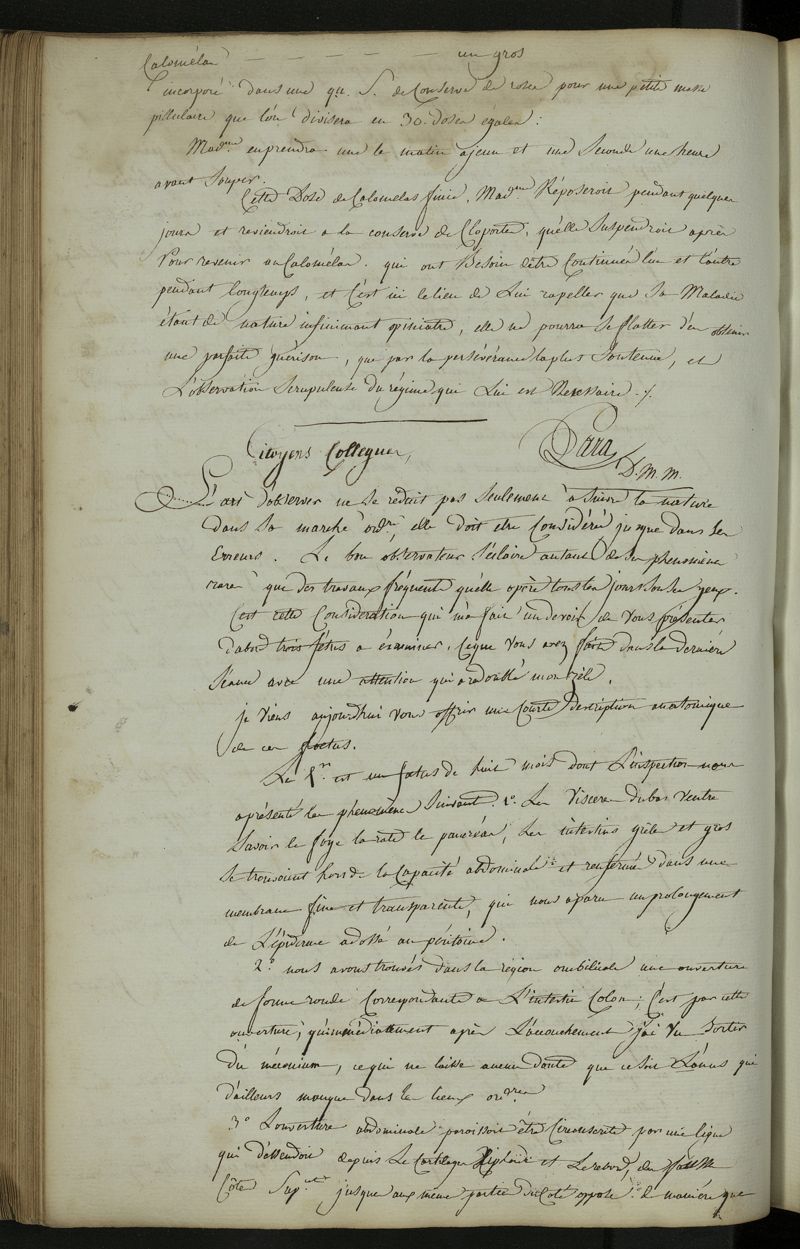 Calomélas — — — — — — un gros
incorporé dans une q.té S. de Conserve de roses pour une petite masse
pillulaire que l'on divisera en 30. doses égales :
Mad.me en prendra une le matin ajeun et une Seconde une heure
avant Souper.
Cette Dose de Calomelas finie, Mad.me Réposeroit pendant quelques
jours et reviendroit a la conserve de Cloportes, qu'elle Suspendroit après
Pour revenir au Calomélas. qui ont Besoin d'être Continués l'un et l'autre
pendant longtemps, et C'est ici le lieu de Lui rapeller que Sa Maladie
étant de nature infiniment opiniatre, elle ne pourra Se flatter d'en obtenir
une parfaite guérison, que par la persévérance la plus Soutenue, et
L'observation Scrupuleuse du régime qui Lui est Necessaire ./.
Para
D. M. M.
Citoyens Collegues,
L'art d'observer ne Se reduit pas Seulement a Suivre la nature
dans Sa marche ord.re, elle doit etre Considérée jusque dans Ses
Erreurs. Le bon observateur S'éclaire autant des phenomenes
rares que des travaux fréquents qu'elle opère tous les jours Sous Ses yeux.
C'est cette Consideration qui m'a fait un devoir de Vous présenter
d'abord trois fétus a éxaminer, Ce que Vous avez fait dans la derniere
Séance avec une attention qui a redoublé mon zèle.
je Viens aujourdhui Vous offrir une Courte Description anatomique
de ces foetus.
Le 1.er est un foetus de huit mois dont L'inspection nous a
présenté les phenomenes Suivants. 1.o Les Visceres du bas Ventre
Savoir le foye la rate le pancréas, Les intestins grêles et gros
Se trouvaient hors de la Capacité abdominale et renfermés dans une
membrane fine et transparente, qui nous a paru un prolongement
de L'épiderme adossé au péritoine.
2.o nous avons trouvés dans la région ombilicale une ouverture
de forme ronde Correspondante a L'intestin Colon; C'est par cette
ouverture, qu'immédiatement après L'accouchement j'ai Vu Sortir
du méconium, ce qui ne laisse aucun doute que ce Soit L'anus qui
d'ailleurs manque dans les lieux ord.res
3.o L'ouverture abdominale paroissoit être Circonscrite par une ligne
qui d'essendoit depuis Le Cartilage Xiphoide et Le rebord des fausses
Côtes Sup.res jusque aux meme parties du Coté opposé : de maniere que